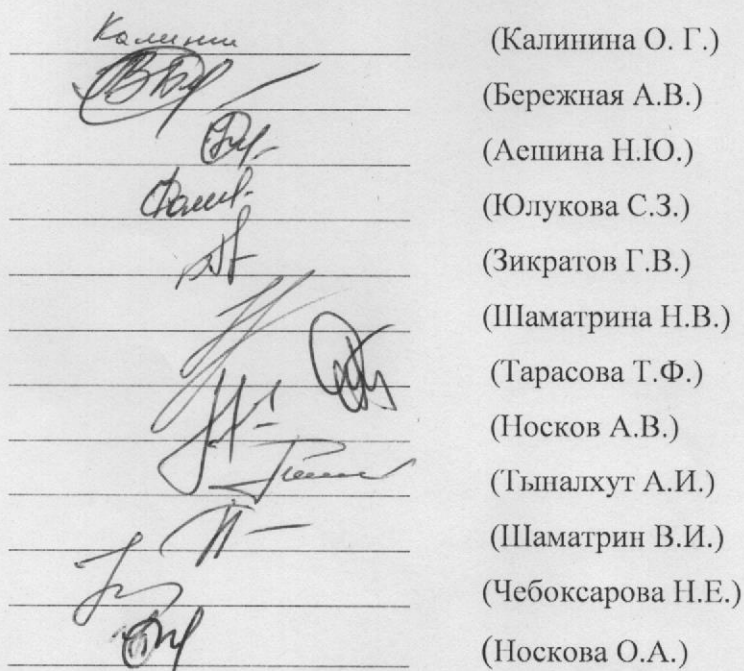 Калинин (Калинина О. Г.)
(Бережная А.В.)
(Аешина Н.Ю.)
(Юлукова С.З.)
(Зикратов Г.В.)
(Шаматрина Н.В.)
(Тарасова Т.Ф.)
(Носков А.В.)
(Тыналхут А.И.)
(Шаматрин В.И.)
(Чебоксарова Н.Е.)
(Носкова О.А.)